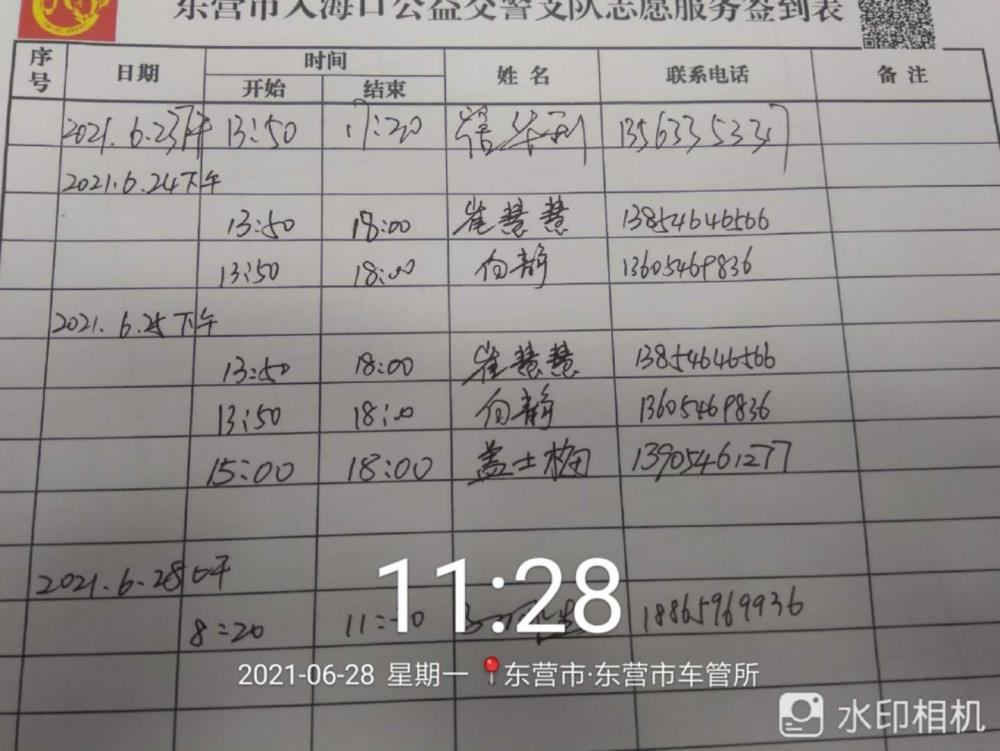 东营市入海口公益交警支队志愿服务签到表
序号 日期 时间 姓名 联系电话 备注
开始 结束
2021.6.23下午 13:50 17:20 华利 1356335337
2021.6.24下午
13:50 18:00 崔慧慧 13854646566
13:50 18:00 向静 13605469836
2021.6.25下午
13:50 18:00 崔慧慧 13854646566
13:50 18:00 向静 13605469836
15:00 18:00 盖士梅 13905461277
2021.6.28上午
8:20 11:30 18865969936
11:28
2021-06-28 星期一 东营市·东营市车管所
水印相机